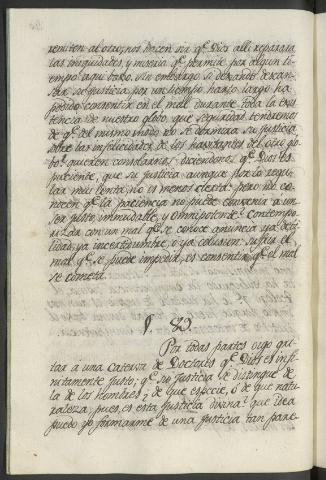 remiten al otro; nos dicen sin qe. Dios alli reparara
las iniquidades, y miseria qe. permite por algun ti-
empo aqui baxo. Sin embargo si dexando descan-
sar su justicia por un tiempo harto largo ha
podido consentir en el mal durante toda la exis-
tencia de nuestro globo, que seguridad tendremos
de qe. del mismo modo no se dormira su justicia
sobre las infelicidades de los havitantes del otro glo-
bo? quieren consolarnos diciendonos qe. Dios es
paciente, que su justicia aunque por lo regu-
lar mui lenta, no es menos cierta: pero no co-
nocen qe. la paciencia no puede convenir a un
ser justo, inmudable, y omnipotente? Contempo-
rizar con un mal qe. se conoce anuncia ya debi-
lidad, ya incertidumbre, o ya colusion: sufrir el
mal qe. se puede impedir, es consentir qe. el mal
se cometa.
§.
Por todas partes oygo gri-
tar a una caterva de Doctores qe. Dios es infi-
nitamente justo; qe. su justicia se distingue de
la de los hombres? de que especie, o de que natu-
raleza, pues, es esta justicia divina? que idea
puedo yo formarme de una justicia tan pare-